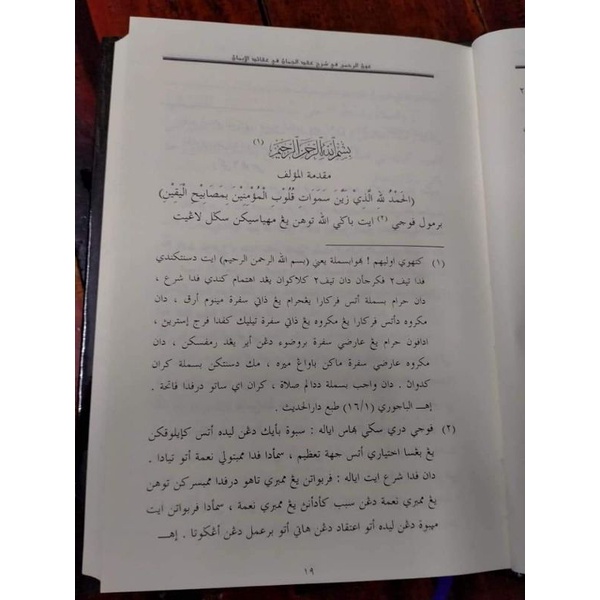 عون الرحمن في شرح عقد الجمان في عقائد الإيمان
بِسْمِ اللهِ الرَّحْمنِ الرَّحِيْمِ (١)
مقدمة المؤلف
(الحَمْدُ لله الَّذِيْ زَيَّنَ سَمَوَاتِ قُلُوْبِ الْمُؤْمِنِيْنَ بِمَصَابِيْحِ الْيَقِيْنِ)
برمول فوجي (٢) ايت باݢي الله توهن يڠ مهياسيكن سكل لاڠيت
(١) كتهوي اوليهم ! بهوابسملة يعني (بسم الله الرحمن الرحيم) ايت دسنتكندي
فدا تيف٢ فكرجأن دان تيف٢ كلاكوان يڠد اهتمام كندي فدا شرع ،
دان حرام بسملة أتس فركارا يڠحرام يڠ ذاتي سفرة مينوم أرق ، دان
مكروه دأتس فركارا يڠ مكروه يڠ ذاتي سفرة تيليك كفدا فرج إسترين ،
ادافون حرام يڠ عارضي سفرة بروضوء دڠن أير يڠد رمفسكن ، دان
مكروه عارضي سفرة ماكن باواڠ ميره ، مك دسنتكن بسملة كران
كدوان . دان واجب بسملة ددالم صلاة ، كران اي ساتو درفدا فاتحة .
إهـ الباجوري (١٦/١) طبع دارالحديث .
(٢) فوجي دري سكي بهاس اياله : سبوة بأيك دڠن ليده أتس كإيلوقكن
يڠ بڠسا اختياري أتس جهة تعظيم ، سمأدا فدا ممبنولي نعمة أتو تيادا .
دان فدا شرع ايت اياله : فربواتن يڠ ممبري تاهو درفدا ممبسركن توهن
يڠ ممبري نعمة دڠن سبب كأدأنڽ يڠ ممبري نعمة ، سمأدا فربواتن ايت
ميبوة دڠن ليده أتو اعتقاد دڠن هاتي أتو برعمل دڠن أڠكوتا . إهـ
١٩